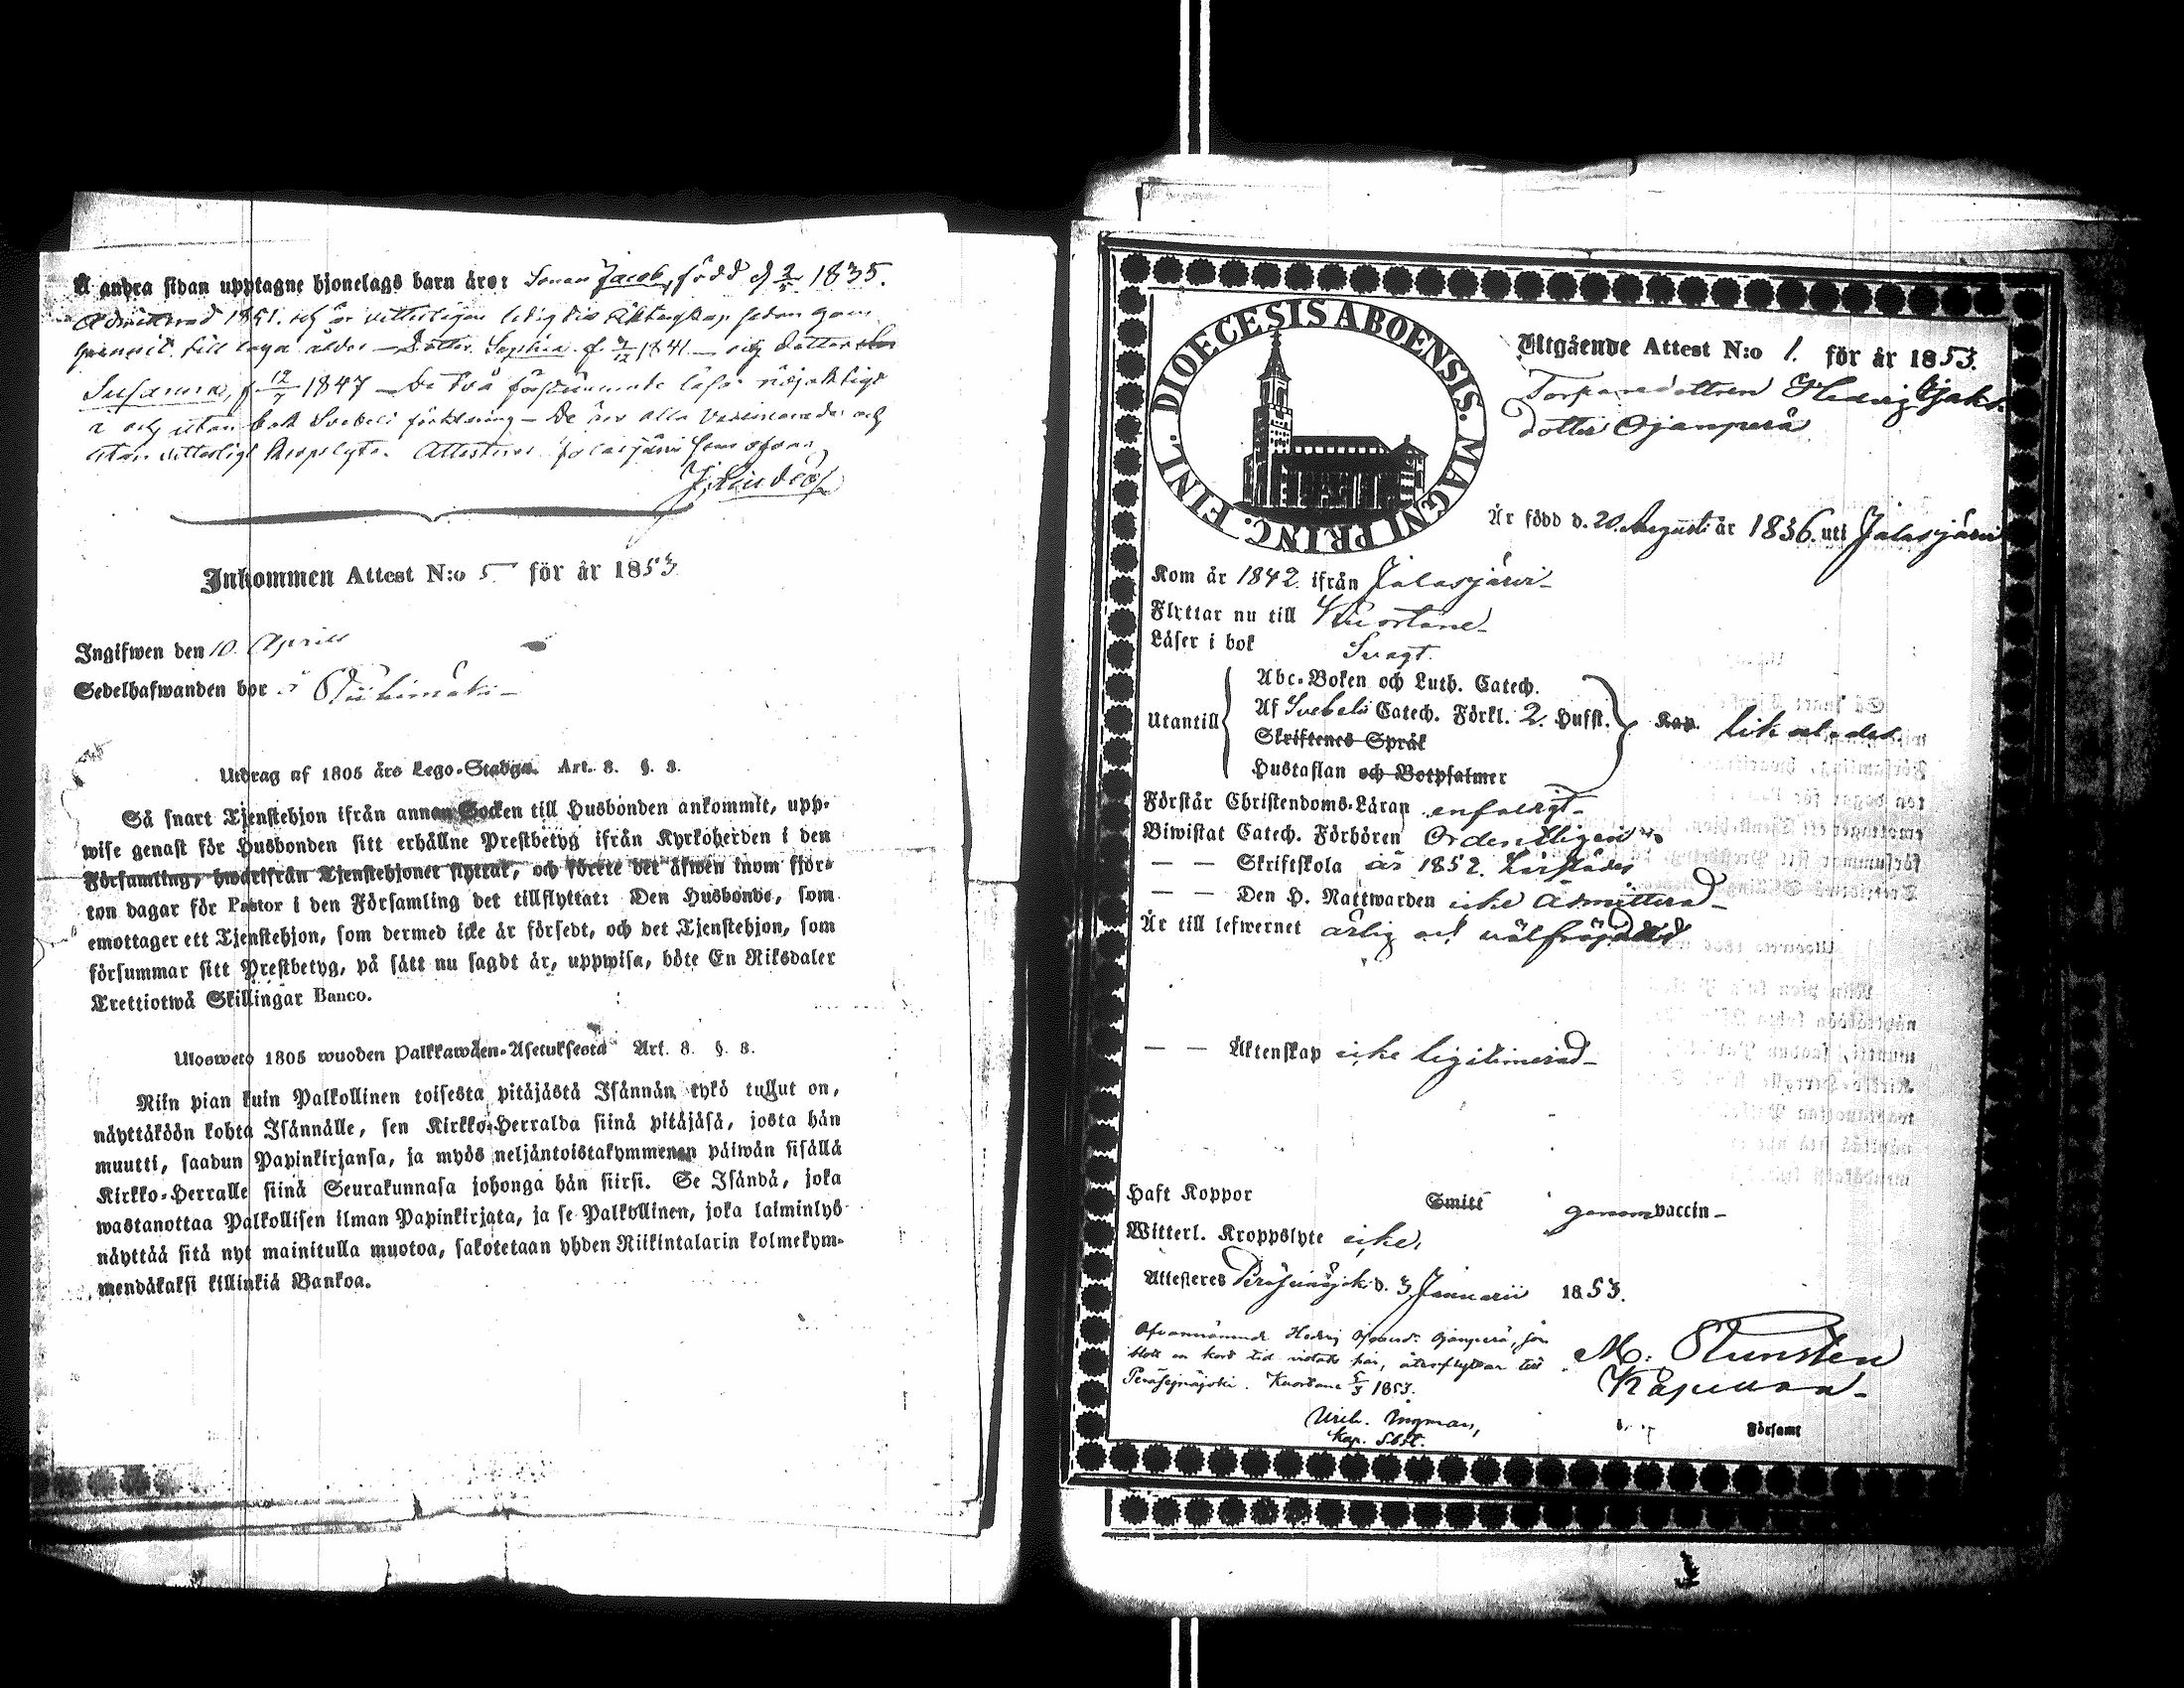 Å andra sidan upptagne hjonelags barn äro: Sonen Jacob, född d 2/5 1835.
Admitterad 1851. och är vitterligen ledig till Äktenskap sedan han
till laga ålder — Dotter Sophia f 1841 — och dotter
Susanna, f 12/7 1847 — De två förstnämnde läsa nöjaktigt
i och utan bok Svebeli förklaring — De äro alla vaccinerade och
utan vitterligt kroppslyte. Attesteras Jalasjärvi som ofvan,
Inkommen Attest N:o 5 för år 1853
Ingifwen den 10. Aprill
Sedelhafwanden bor i
Utdrag af 1805 års Lego-Stadga. Art. 8. §. 8.
Så snart Tjenstehjon ifrån annan Socken till Husbonden ankommit, upp-
wise genast för Husbonden sitt erhållne Prestbetyg ifrån Kyrkoherden i den
Församling, hwarifrån Tjenstehjonet flyttat, och förete det äfwen inom fjor-
ton dagar för Pastor i den Församling det tillflyttat: Den Husbonde, som
emottager ett Tjenstehjon, som dermed icke är försedt, och det Tjenstehjon, som
försummar sitt Prestbetyg, på sätt nu sagdt är, uppwisa, böte En Riksdaler
Trettiotwå Skillingar Banco.
Ulosweto 1805 wuoden Palkkawäen-Asetuksesta Art. 8. §. 8.
Niin pian kuin Palkollinen toisesta pitäjästä Isännän tykö tullut on,
näyttäköön kohta Isännälle, sen Kirkko-Herralda siinä pitäjäsä, josta hän
muutti, saadun Papinkirjansa, ja myös neljäntoistakymmenen päiwän sisällä
Kirkko-Herralle siinä Seurakunnasa johonga hän siirsi. Se Isändä, joka
wastanottaa Palkollisen ilman Papinkirjata, ja se Palkollinen, joka laiminlyö
näyttää sitä nyt mainitulla muotoa, sakotetaan yhden Riikintalarin kolmekym-
mendäkaksi killinkiä Bankoa.
DIOECESIS ABOENSIS. MAGNI PRINC. FINL.
Utgående Attest N:o 1. för år 1853.
Torparedottren Hedvig Jakobs
dotter Ojanperä
Är född d. 20. Augusti år 1836. uti Jalasjärvi
Kom år 1842 ifrån Jalasjärvi-
Flyttar nu till Kuortane-
Läser i bok Svagt.
Abc-Boken och Luth. Catech.
Utantill Af Svebelii Catech. Förkl. 2. Hufst. Kap. likaledes
Skriftenes Språk
Hustaflan och Botpsalmer
Förstår Christendoms-Läran enfaldigt-
Biwistat Catech. Förhören Ordentligen
— — Skriftskola år 1852. härstädes
— — Den H. Nattwarden icke Admitterad-
Är till lefwernet ärlig och välfräjdad
— — Äktenskap icke legitimerad-
Haft Koppor Smitt genom vaccin-
Witterl. Kroppslyte icke.
Attesteres Peräseinäjoki d. 3 Januarii 1853.
Ofvannämnde Hedvig Ojanperä, som
blott en kort tid vistats här, återflyttar till
Peräseinäjoki. Kuortane 5/3 1853.
Mich. Ingman,
Kap. Sbst.
M. Stunsten
Kapellan-
Församl